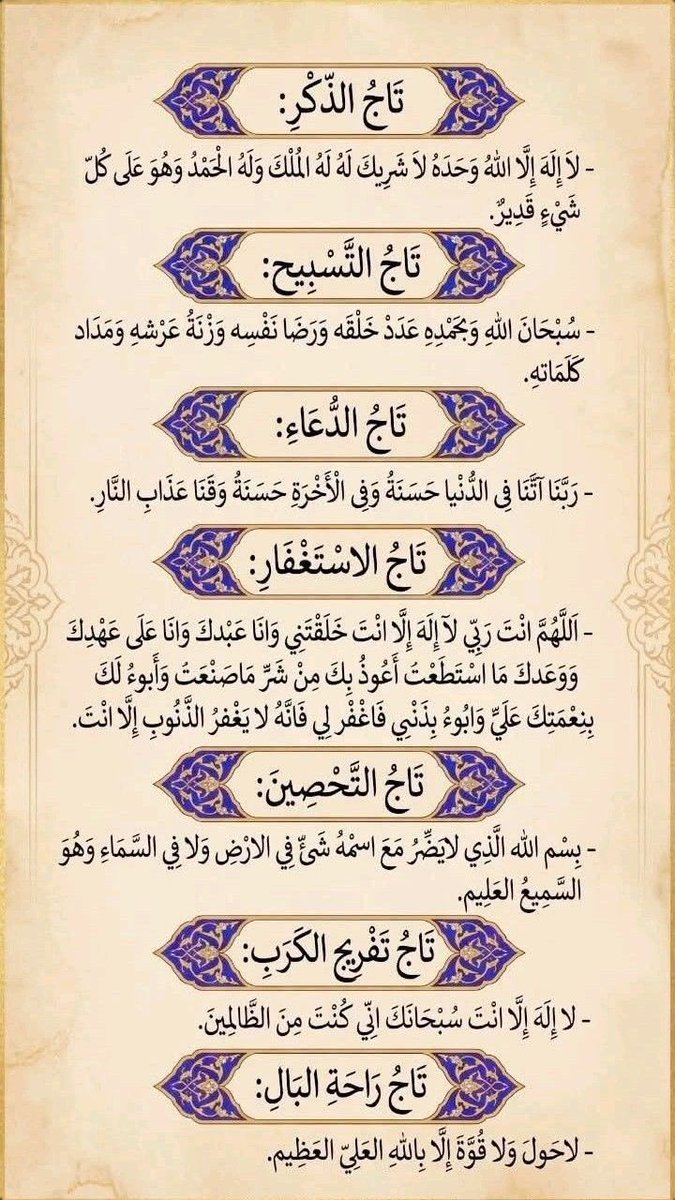 تَاجُ الذّكْرِ:
- لاَ إِلَهَ إِلَّا اللهُ وَحَدَهُ لاَ شَرِيكَ لَهُ لَهُ المُلْكَ وَلَهُ الْحَمْدُ وَهُوَ عَلَى كُلّ
شَيْءٍ قَدِيرُ.
تَاجُ التَّسْبِيح:
- سُبْحَانَ اللهِ وَبِحَمْدِهِ عَدَدْ خَلْقَه وَرَضَا نَفْسِه وَزْنَةُ عَرْشهِ وَمَدَاد
كَلَمَاتهِ.
تَاجُ الدُّعَاءِ:
- رَبَّنَا آتَّنَا فِى الدُّنْيا حَسَنَةُ وَفِى الْأَخْرَةِ حَسَنَةُ وَقَنَا عَذَابِ النَّارِ.
تَاجُ الاسْتَغْفَارِ:
- اَللَّهُمَّ انْتَ رَبِّي لآ إِلَهَ إِلَّا انْتَ خَلَقْتَنِي وَانَا عَبْدكَ وَانَا عَلَى عَهْدِكَ
وَوَعَدكَ مَا اسْتَطَعْتَ أَعُوذُ بِكَ مِنْ شَرِّ مَاصَنْعَتْ وَأَبوءُ لَكَ
بِنِعْمَتِكَ عَلَيِّ وَابُوءُ بِذَنْبِي فَاغْفْر لِي فَانَّهُ لا يَغْفرُ الذَّنُوبِ إِلَّا انْتَ.
تَاجُ التَّحْصِينَ:
- بِسْم الله الَّذِي لايَضِّرُ مَعَ اسمْهُ شَئّ فِي الارْضِ وَلا فِي السَّمَاءِ وَهُوَ
السَّمِيعُ العَلِيم.
تَاجُ تَفْرِيج الكَرَبِ:
- لا إِلَهَ إِلَّا انْتَ سُبْحَانَكَ اِنِّي كُنْتَ مِنَ الظَّالِمِينَ.
تَاجُ رَاحَةِ البَالِ:
- لاحَولَ وَلا قُوَّةَ إِلَّا بِاللهِ العَلِيّ العَظِيم.